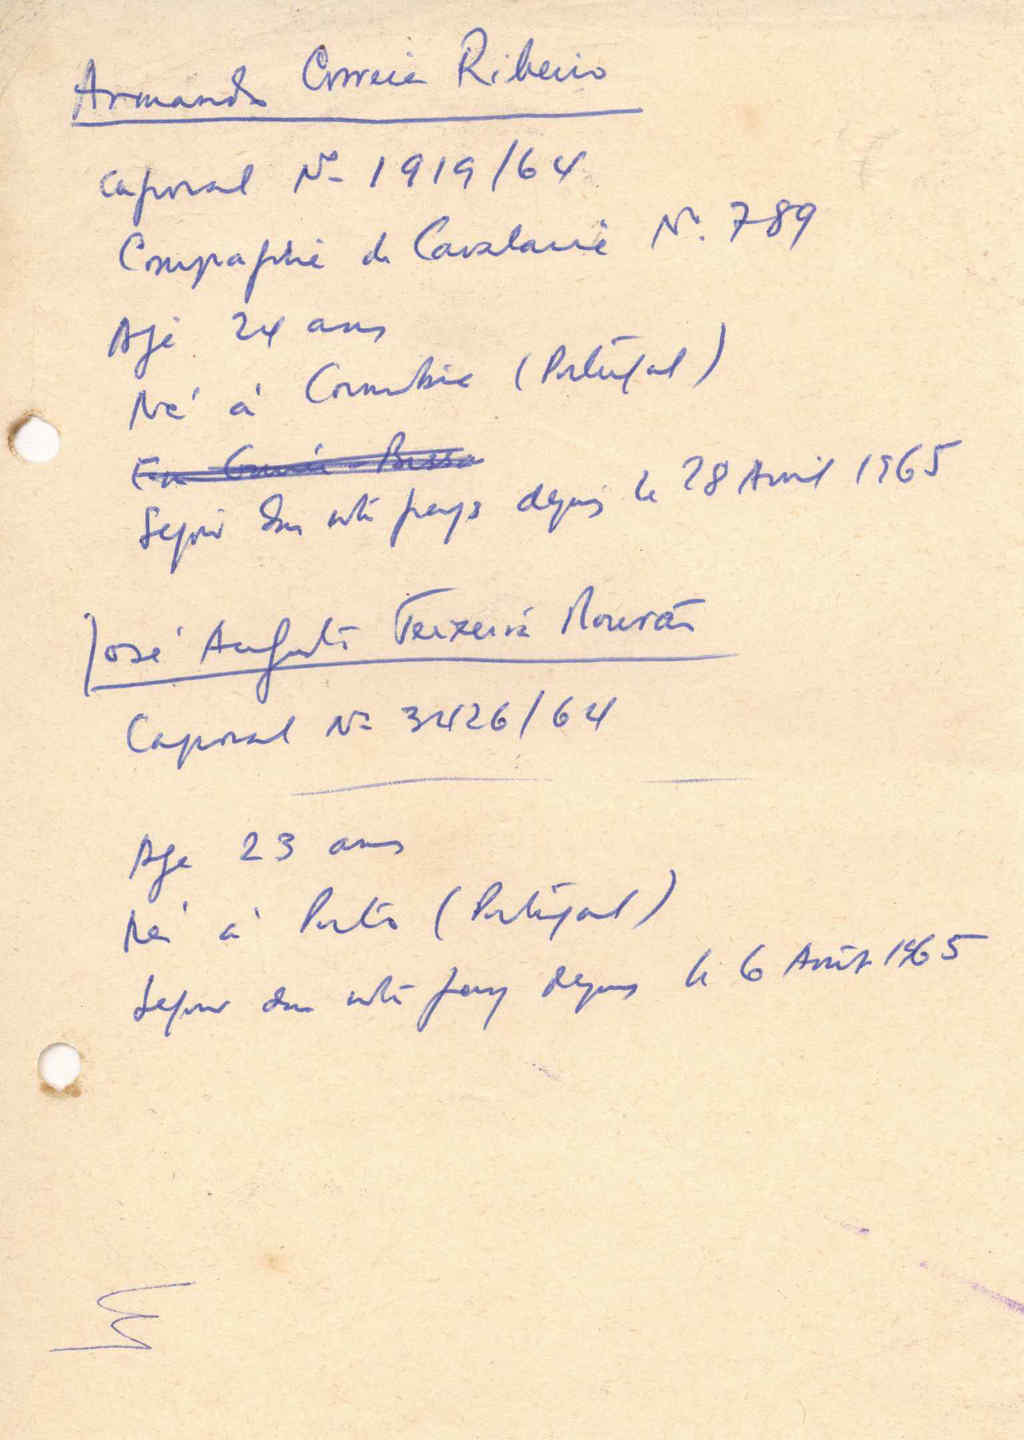 Armando Correia Ribeiro
Caporal Nº 1919/64
Compagnie de Cavalarie Nº. 789
Age 24 ans
Né à (Portugal)
En Guinée-Bissao
Sejour dans notre pays depuis le 28 Avril 1965
José Augusto Teixeira Mourão
Caporal Nº 3426/64
Age 23 ans
Né à Porto (Portugal)
Sejour dans notre pays depuis le 6 Août 1965